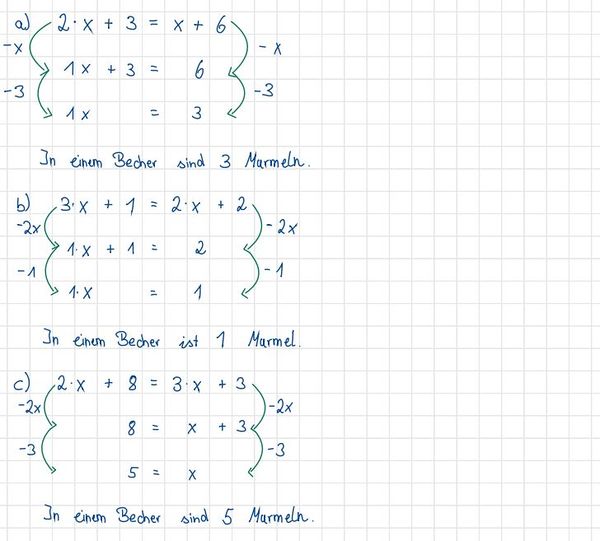 a) 2·x + 3 = x + 6
-x -x
1x + 3 = 6
-3 -3
1x = 3
In einem Becher sind 3 Murmeln.
b) 3·x + 1 = 2·x + 2
-2x -2x
1·x + 1 = 2
-1 -1
1·x = 1
In einem Becher ist 1 Murmel.
c) 2·x + 8 = 3·x + 3
-2x -2x
8 = x + 3
-3 -3
5 = x
In einem Becher sind 5 Murmeln.